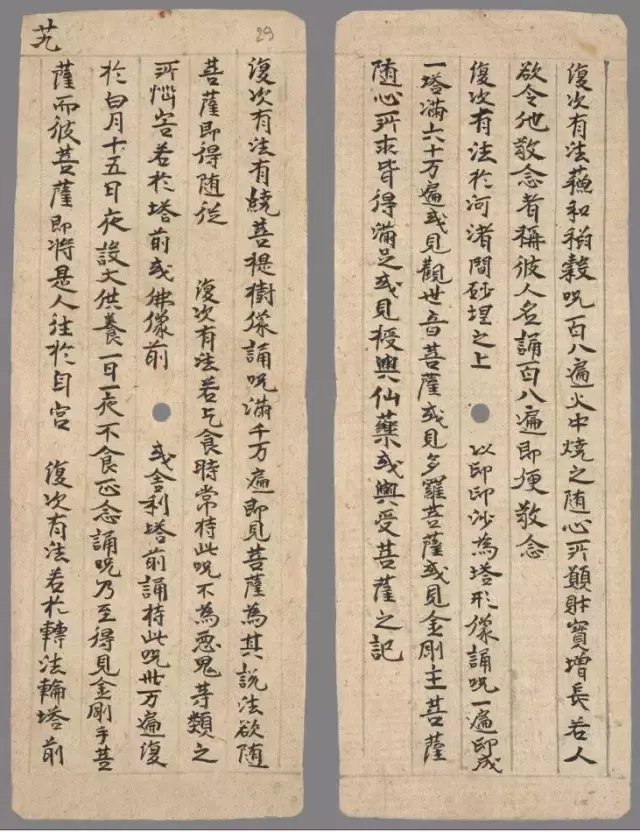 復次有法蘓和稻穀呪百八遍火中燒之随心所願財寶增長若人
欲令他敬念者稱彼人名誦百八遍即便敬念
復次有法於河渚間砂埋之上 以印印沙為塔形像誦呪一遍印成
一塔滿六十万遍或見觀世音菩薩或見多羅菩薩或見金剛主菩薩
随心所求皆得滿足或見授與仙藥或與受菩薩之記
29
艽
復次有法有繞菩提樹像誦呪滿千万遍即見菩薩為其說法欲随
菩薩即得随從 復次有法若乞食時常持此呪不為惡鬼等類之
所惱害若於塔前或佛像前 或舍利塔前誦持此呪卅万遍復
於白月十五日夜設大供養一日一夜不食正念誦呪乃至得見金剛手菩
薩而彼菩薩即將是人往於自宮 復次有法若於轉法輪塔前